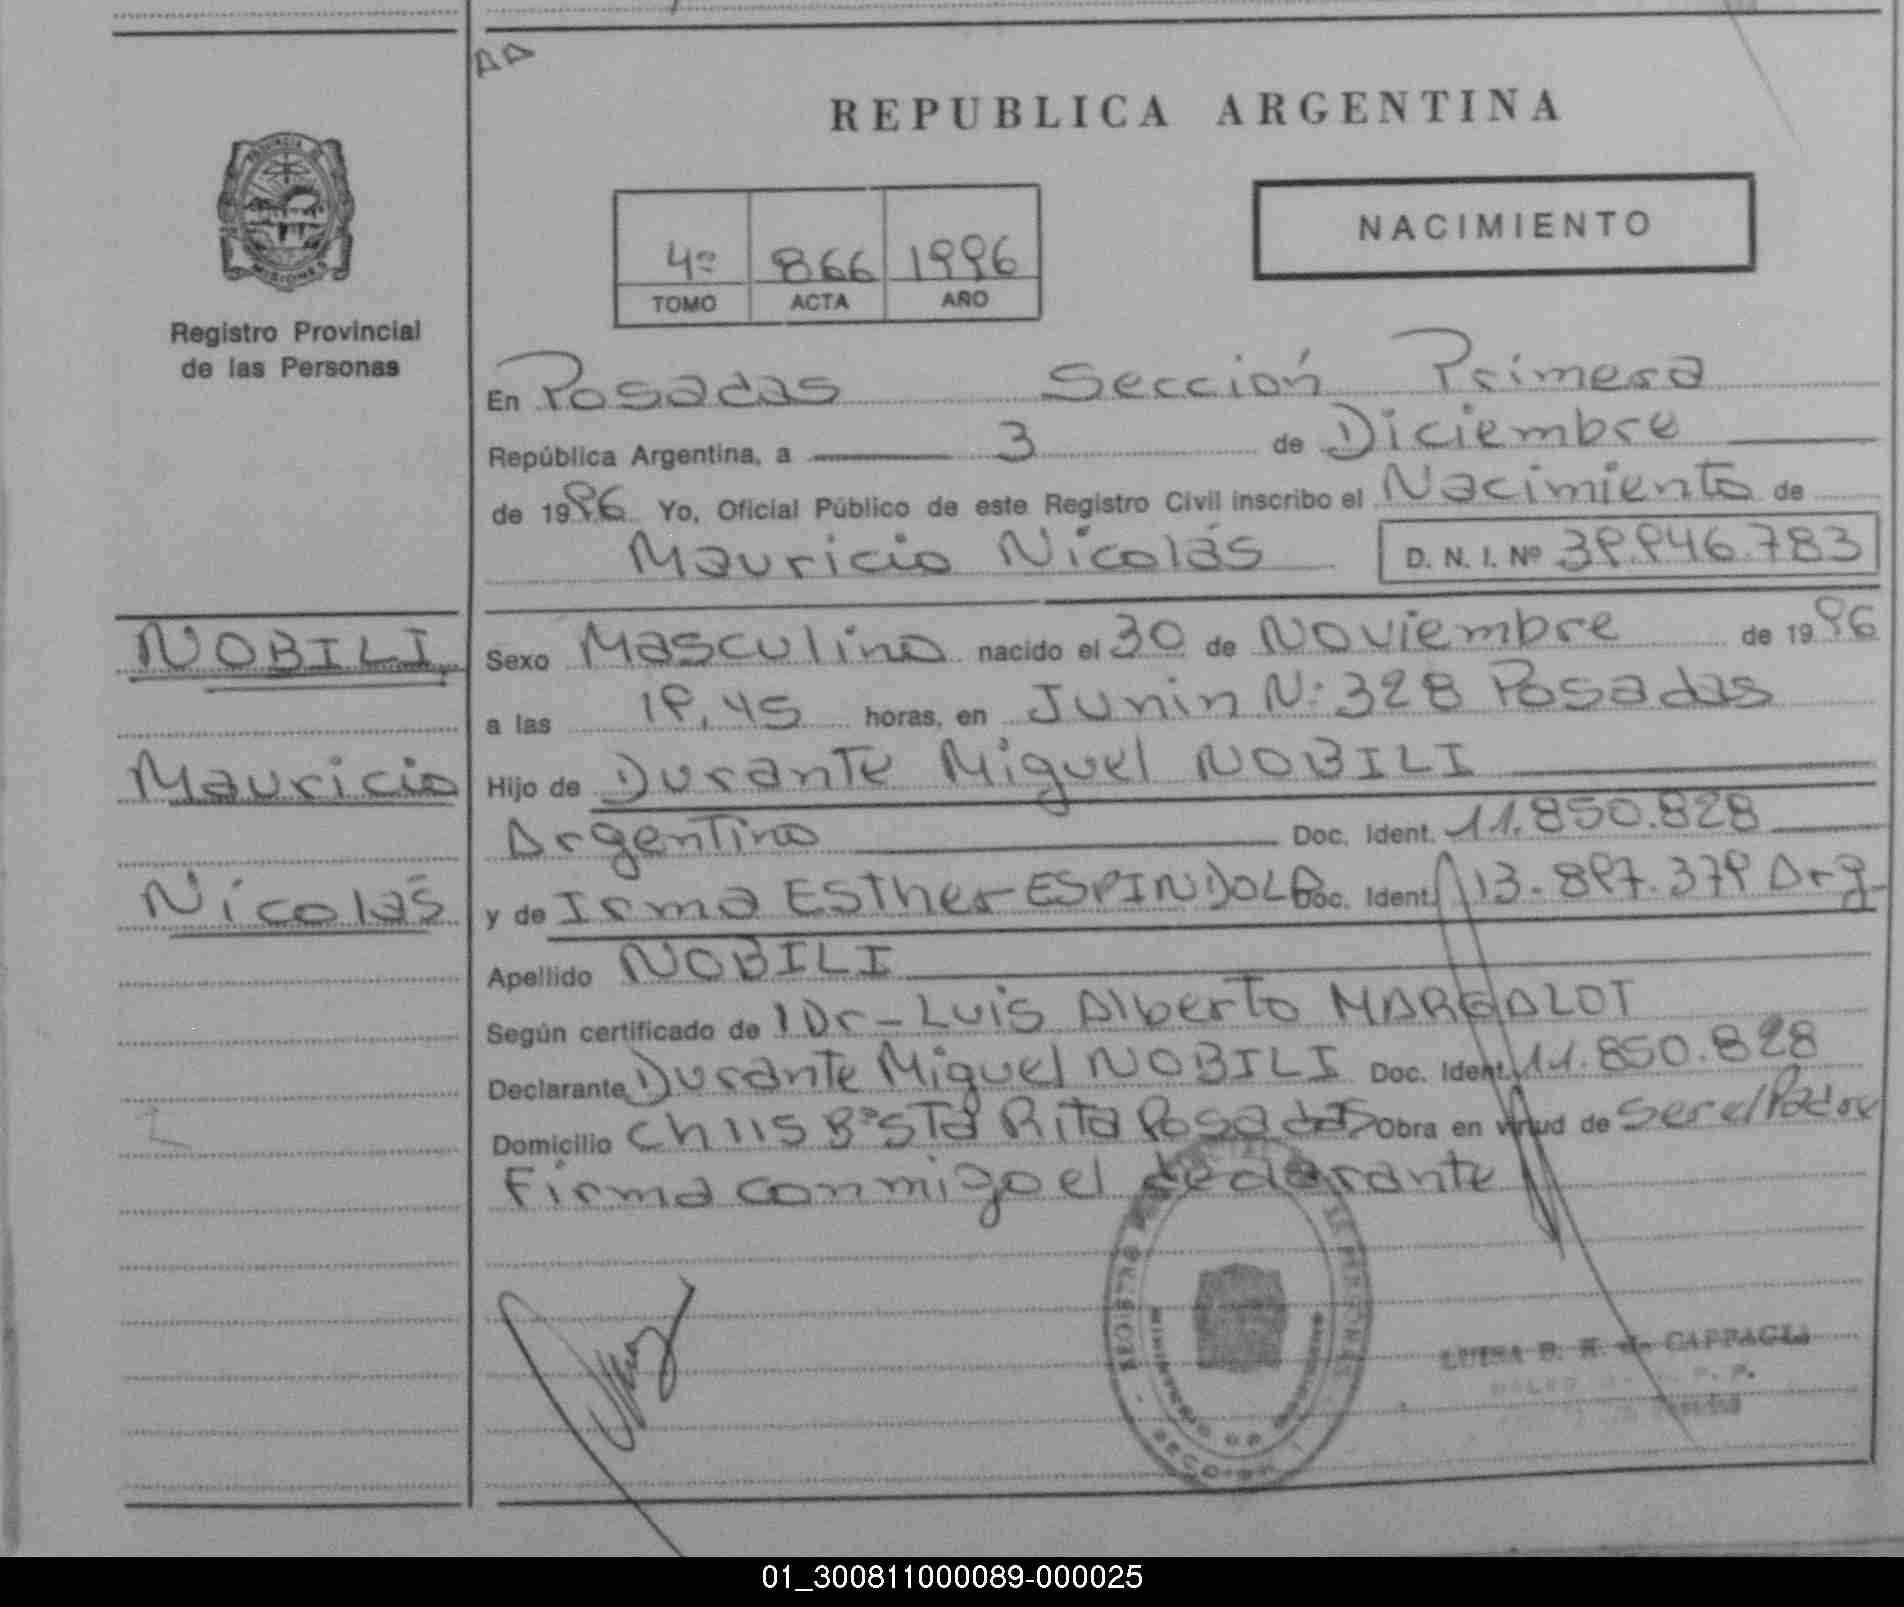 AA
REPUBLICA ARGENTINA
NACIMIENTO
4º 866 1996
TOMO ACTA AÑO
PROVINCIA DE
MISIONES
Registro Provincial
de las Personas
En Posadas Sección Primera
República Argentina, a 3 de Diciembre
de 1996 Yo, Oficial Público de este Registro Civil inscribo el Nacimiento de
Mauricio Nicolás D. N. I. Nº 39.946.783
NOBILI
Mauricio
Nicolás
Sexo Masculino nacido el 30 de Noviembre de 1996
a las 19,45 horas, en Junin N: 328 Posadas
Hijo de Durante Miguel NOBILI
Argentino Doc. Ident. 11.850.828
y de Irma ESTher ESPINDOLA Doc. Ident. 13.897.379 Arg.
Apellido NOBILI
Según certificado de Dr. Luis Alberto MARGALOT
Declarante Durante Miguel NOBILI Doc. Ident. 11.850.828
Domicilio Ch 115 Bº Sta Rita Posadas Obra en virtud de Ser el Padre
Firma conmigo el declarante
REGISTRO PROVINCIAL DE LAS PERSONAS
MINISTERIO DE GOBIERNO
LUISA B. H. de CAPPAGLI
Posadas
01_300811000089-000025